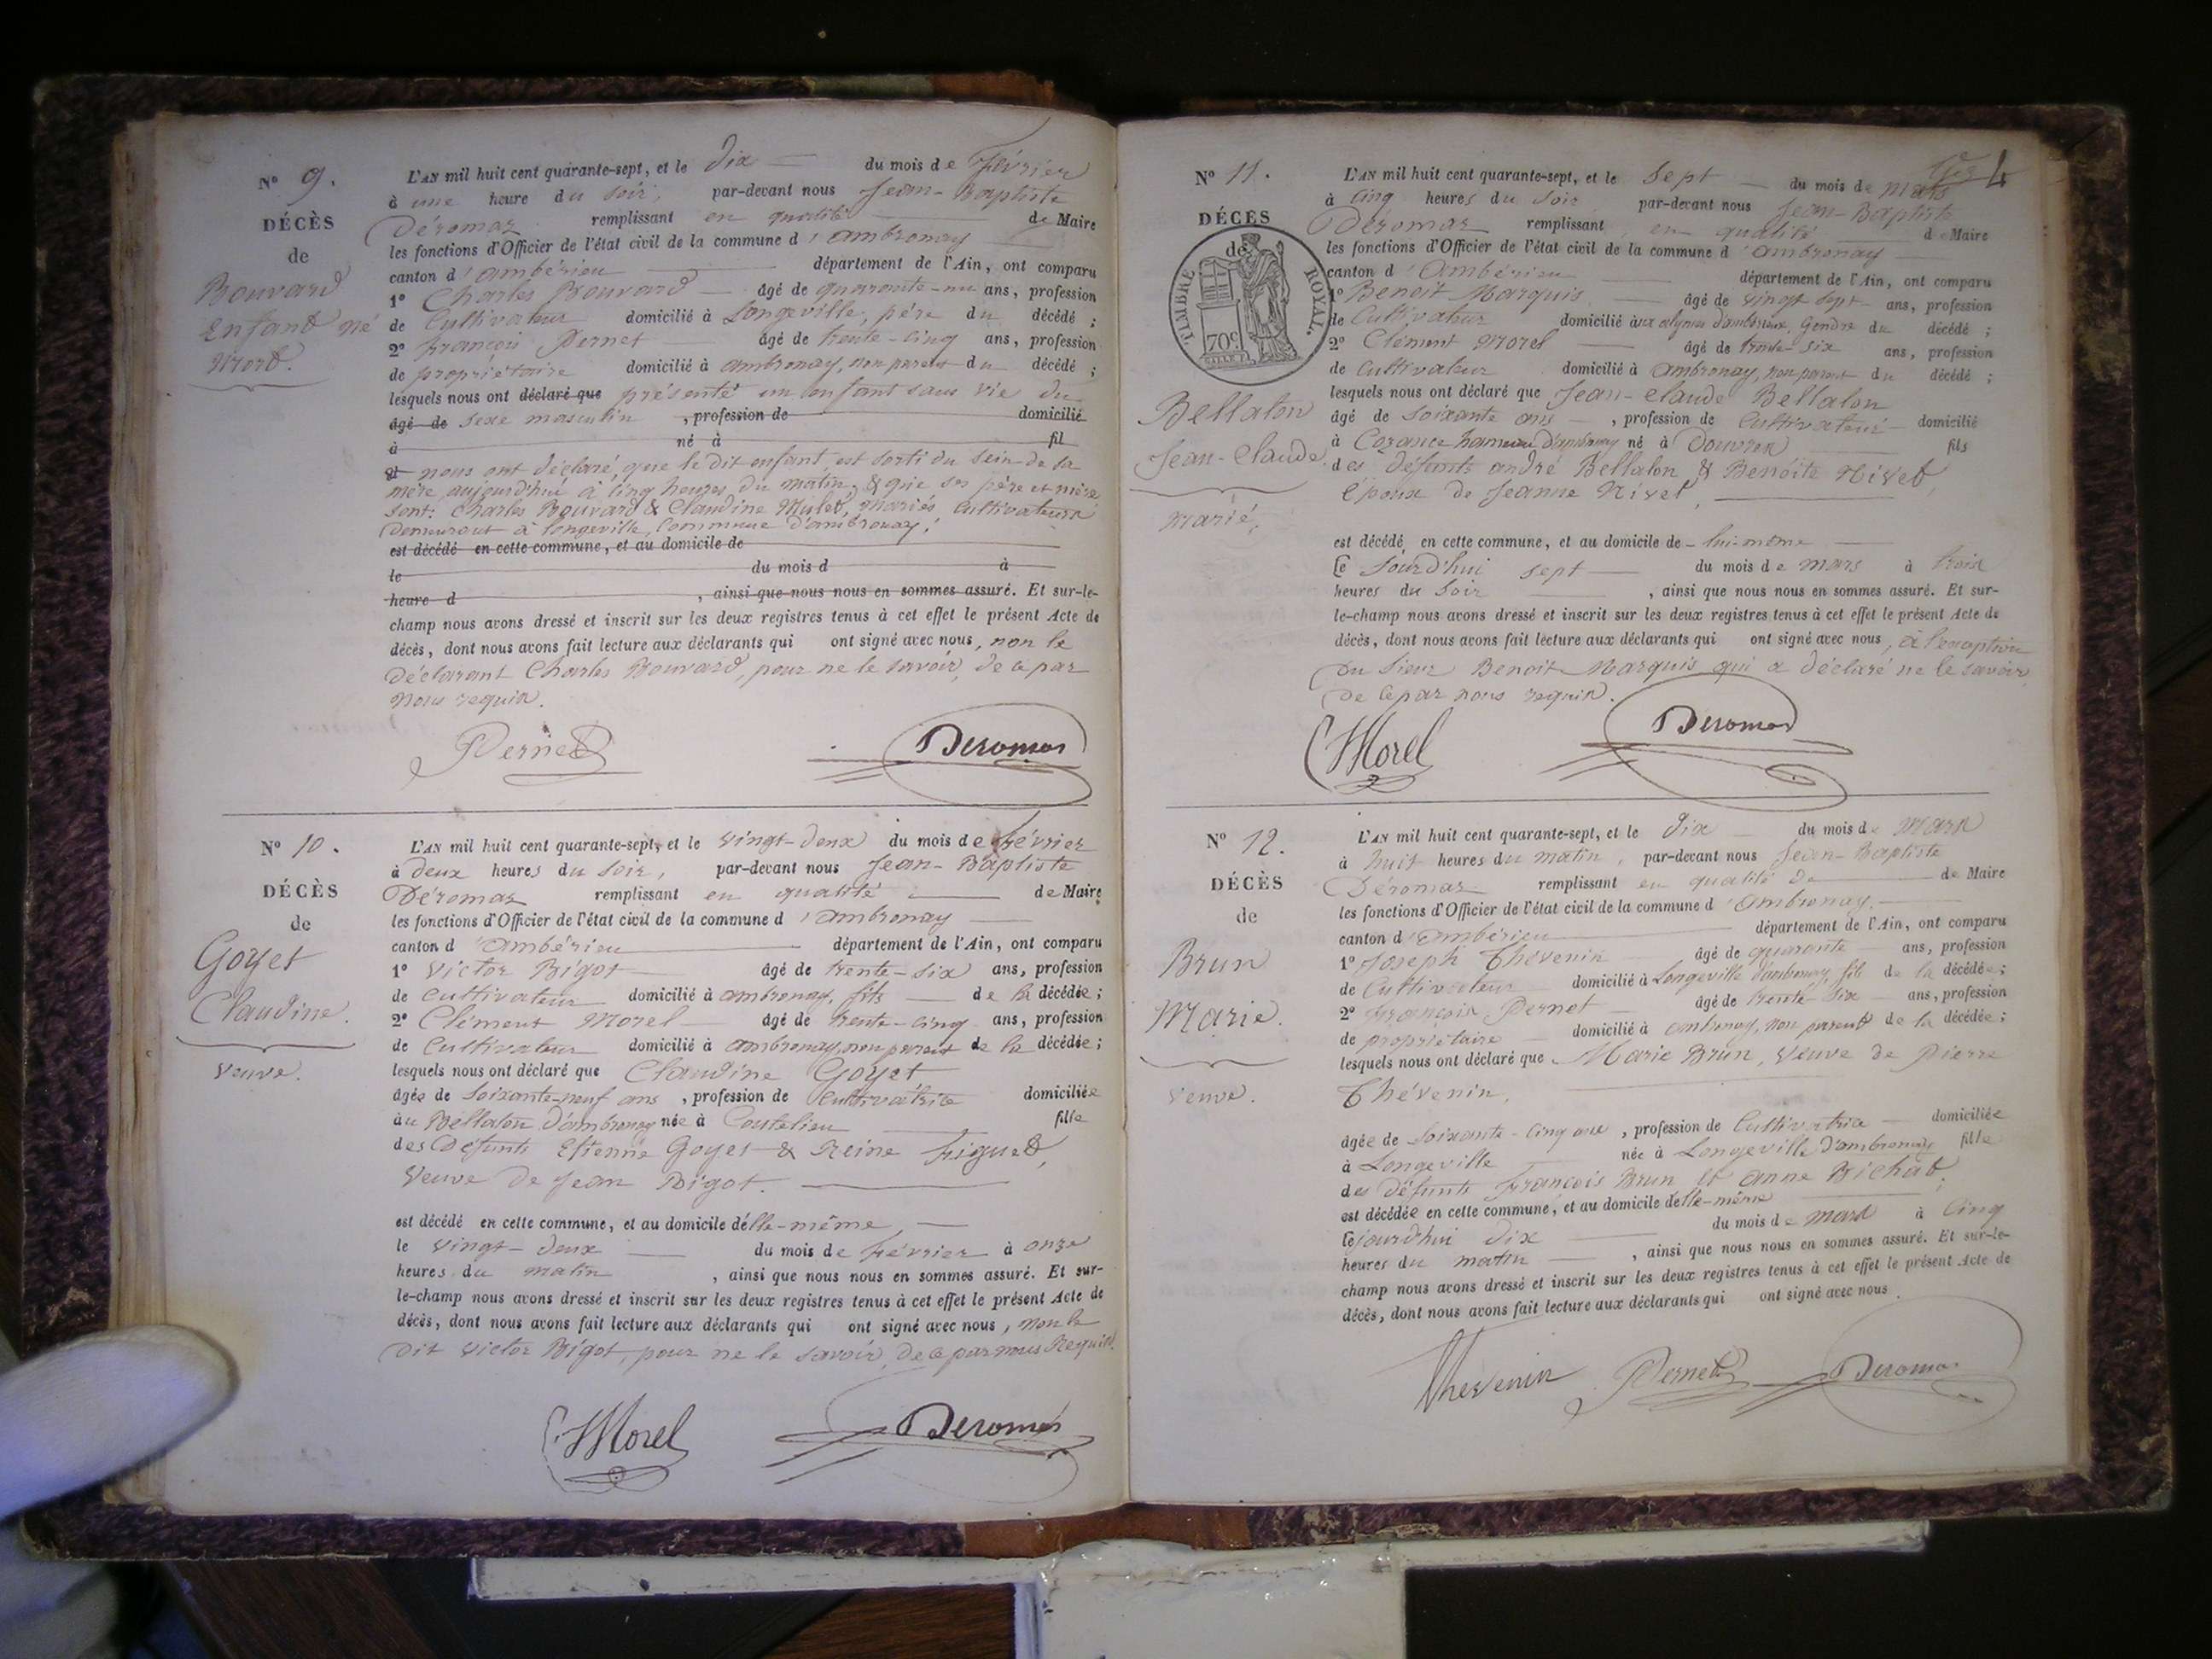 N° 9.
DÉCÈS
de
Bouvard
Enfant né
Mort.
L'AN mil huit cent quarante-sept, et le Dix du mois de Février
à une heure du soir, par-devant nous Jean-Baptiste
Déromas remplissant en qualité de Maire
les fonctions d'Officier de l'état civil de la commune d'ambronay
canton d'ambérieu département de l'Ain, ont comparu
1° Charles Bouvard âgé de quarante-un ans, profession
de Cultivateur domicilié à Longeville, père du décédé ;
2° François Pernet âgé de trente-cinq ans, profession
de propriétaire domicilié à ambronay, non parent du décédé ;
lesquels nous ont déclaré que présenté un enfant sans vie du
âgé de sexe masculin , profession de domicilié
à né à fil
et nous ont déclaré, que le dit enfant, est sorti du sein de sa
mère aujourd'hui à cinq heures du matin, & que ses père et mère
sont: Charles Bouvard & Claudine Mulet, mariés Cultivateurs
Demeurant à Longeville, Commune d'ambronay.
est décédé en cette commune, et au domicile de
le du mois d à
heure d , ainsi que nous nous en sommes assuré. Et sur-le-
champ nous avons dressé et inscrit sur les deux registres tenus à cet effet le présent Acte de
décès, dont nous avons fait lecture aux déclarants qui ont signé avec nous, non le
Déclarant Charles Bouvard, pour ne le savoir, de ce par
nous requis.
Pernet Deromas
N° 10.
DÉCÈS
de
Goyet
Claudine.
Veuve.
L'AN mil huit cent quarante-sept, et le vingt-deux du mois de Février
à deux heures du soir, par-devant nous Jean-Baptiste
Déromas remplissant en qualité de Maire
les fonctions d'Officier de l'état civil de la commune d'ambronay
canton d'ambérieu département de l'Ain, ont comparu
1° Victor Bigot âgé de trente-six ans, profession
de cultivateur domicilié à ambronay, fils de la décédée ;
2° Clément Morel âgé de trente-cinq ans, profession
de Cultivateur domicilié à ambronay, non parent de la décédée ;
lesquels nous ont déclaré que Claudine Goyet
âgée de soixante-neuf ans , profession de Cultivatrice domiciliée
au Bellaton d'ambronay née à Coutelieu fille
des Défunts Etienne Goyet & Reine Figuet,
Veuve de Jean Bigot.
est décédé en cette commune, et au domicile d'elle-même,
le vingt-deux du mois de Février à onze
heures du matin , ainsi que nous nous en sommes assuré. Et sur-
le-champ nous avons dressé et inscrit sur les deux registres tenus à cet effet le présent Acte de
décès, dont nous avons fait lecture aux déclarants qui ont signé avec nous, non le
Dit Victor Bigot, pour ne le savoir, de ce par nous Requis.
C. Morel Deromas
4
N° 11.
DÉCÈS
de
TIMBRE ROYAL.
70c
Bellaton
Jean-Claude.
marié.
L'AN mil huit cent quarante-sept, et le Sept du mois de mars
à cinq heures du soir par-devant nous Jean-Baptiste
Déromas remplissant en qualité de Maire
les fonctions d'Officier de l'état civil de la commune d'ambronay
canton d'Ambérieu département de l'Ain, ont comparu
1° Benoit Marquis âgé de vingt sept ans, profession
de Cultivateur domicilié aux d'ambérieux, Gendre du décédé ;
2° Clément Morel âgé de trente-six ans, profession
de Cultivateur domicilié à ambronay, non parent du décédé ;
lesquels nous ont déclaré que Jean-Claude Bellaton
âgé de soixante ans , profession de Cultivateur domicilié
à Cozance hameau d'ambronay né à Douvres fils
des défunts andré Bellaton & Benoîte Nivet,
époux de Jeanne Nivet,
est décédé en cette commune, et au domicile de lui-même
Ce Jourd'hui sept du mois de mars à trois
heures du soir , ainsi que nous nous en sommes assuré. Et sur-
le-champ nous avons dressé et inscrit sur les deux registres tenus à cet effet le présent Acte de
décès, dont nous avons fait lecture aux déclarants qui ont signé avec nous, à l'exception
Du Sieur Benoit Marquis qui a déclaré ne le savoir,
De ce par nous requis.
C Morel Deromas
N° 12.
DÉCÈS
de
Brun
Marie.
Veuve.
L'AN mil huit cent quarante-sept, et le Dix du mois de Mars
à huit heures du matin, par-devant nous Jean-Baptiste
Déromas remplissant en qualité de de Maire
les fonctions d'Officier de l'état civil de la commune d'ambronay.
canton d'Ambérieu département de l'Ain, ont comparu
1° Joseph Thévenin âgé de quarante ans, profession
de Cultivateur domicilié à Longeville d'ambronay, fils de la décédée ;
2° François Pernet âgé de trente-six ans, profession
de propriétaire domicilié à ambronay, non parent de la décédée ;
lesquels nous ont déclaré que Marie Brun, Veuve de Pierre
Thévenin,
âgée de soixante-cinq ans , profession de Cultivatrice domiciliée
à Longeville née à Longeville d'ambronay fille
des Défunts François Brun et anne Bichat,
est décédée en cette commune, et au domicile d'elle-même
Cejourd'hui dix du mois de mars à cinq
heures du matin , ainsi que nous nous en sommes assuré. Et sur-le-
champ nous avons dressé et inscrit sur les deux registres tenus à cet effet le présent Acte de
décès, dont nous avons fait lecture aux déclarants qui ont signé avec nous.
Thevenin Pernet Deromas